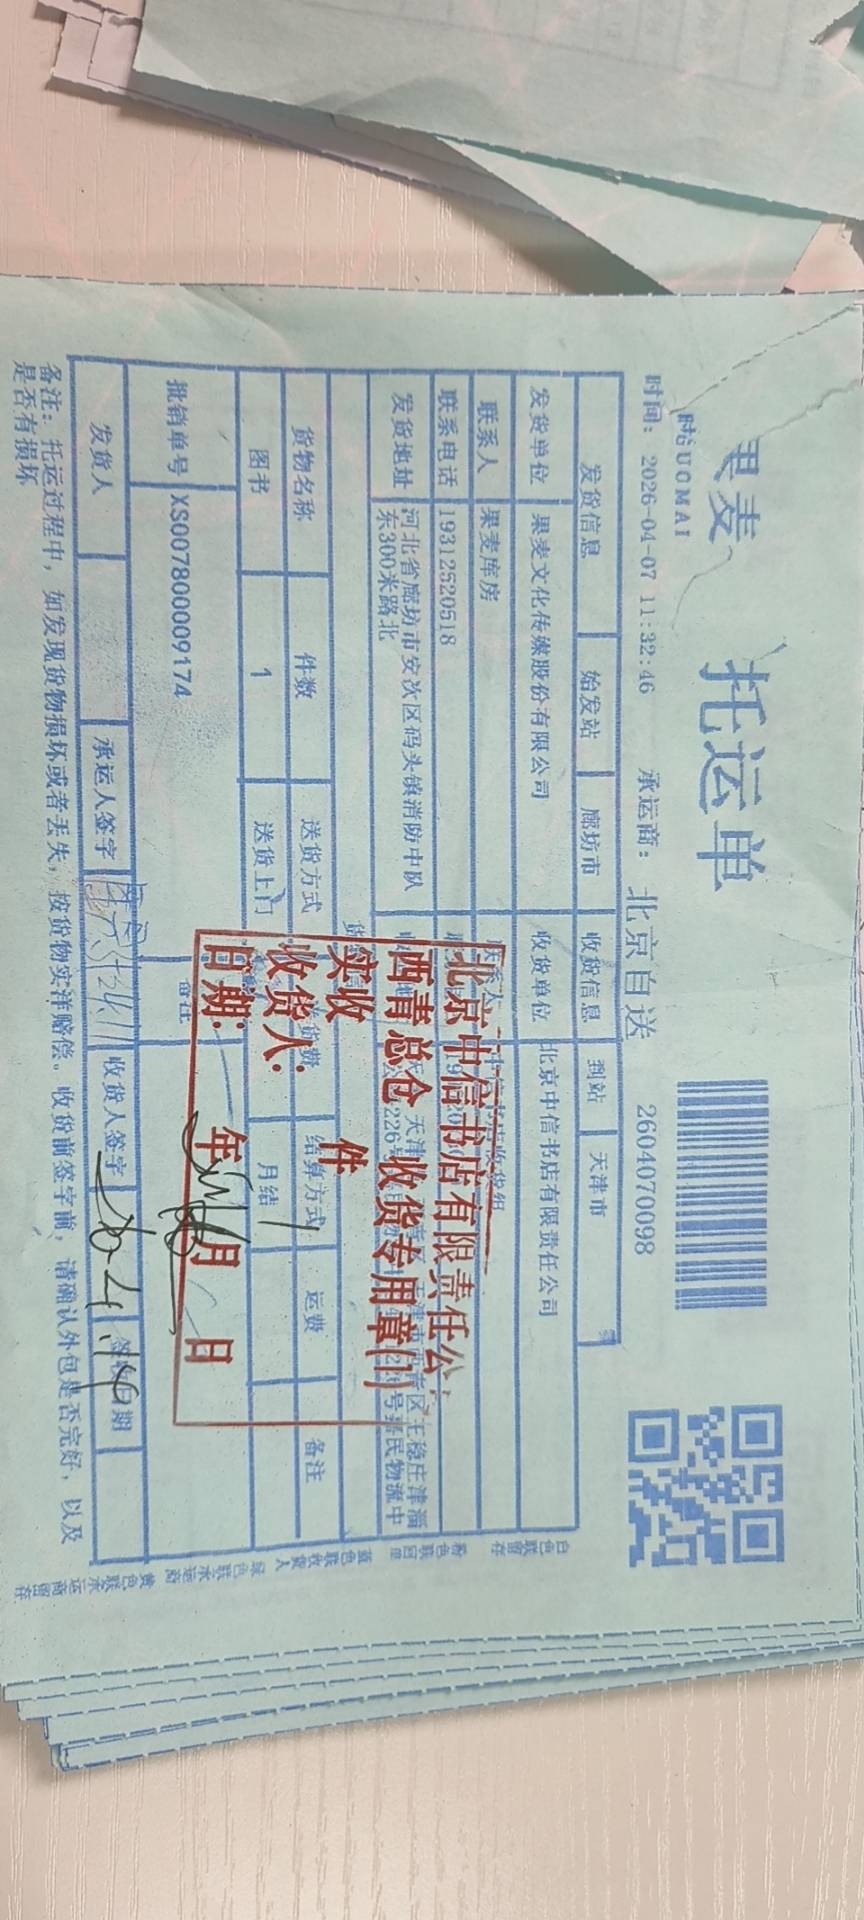 果麦
托运单
时间: 2026-04-07 11:32:46
承运商: 北京自送
2604070098
发货信息 始发站 廊坊市 收货信息 到站 天津市
发货单位 果麦文化传媒股份有限公司 收货单位 北京中信书店有限责任公司
联系人 果麦库房
联系电话 19312520518
发货地址 河北省廊坊市安次区码头镇消防中队
东300米路北
货物名称 件数 送货方式 结算方式 运费 备注
图书 1 送货上门 月结
批销单号 XS007800009174 备注
发货人 承运人签字 收货人签字 签收日期
26.4.14
备注: 托运过程中, 如发现货物损坏或者丢失, 按货物实洋赔偿。收货前签字前, 请确认外包是否完好, 以及
是否有损坏
北京中信书店有限责任公
西青总仓 收货专用章(1)
实收 件
收货人:
日期: 年 月 日
白色联留存
粉色联回单
蓝色联收货人
绿色联承运商
黄色联承运商留存